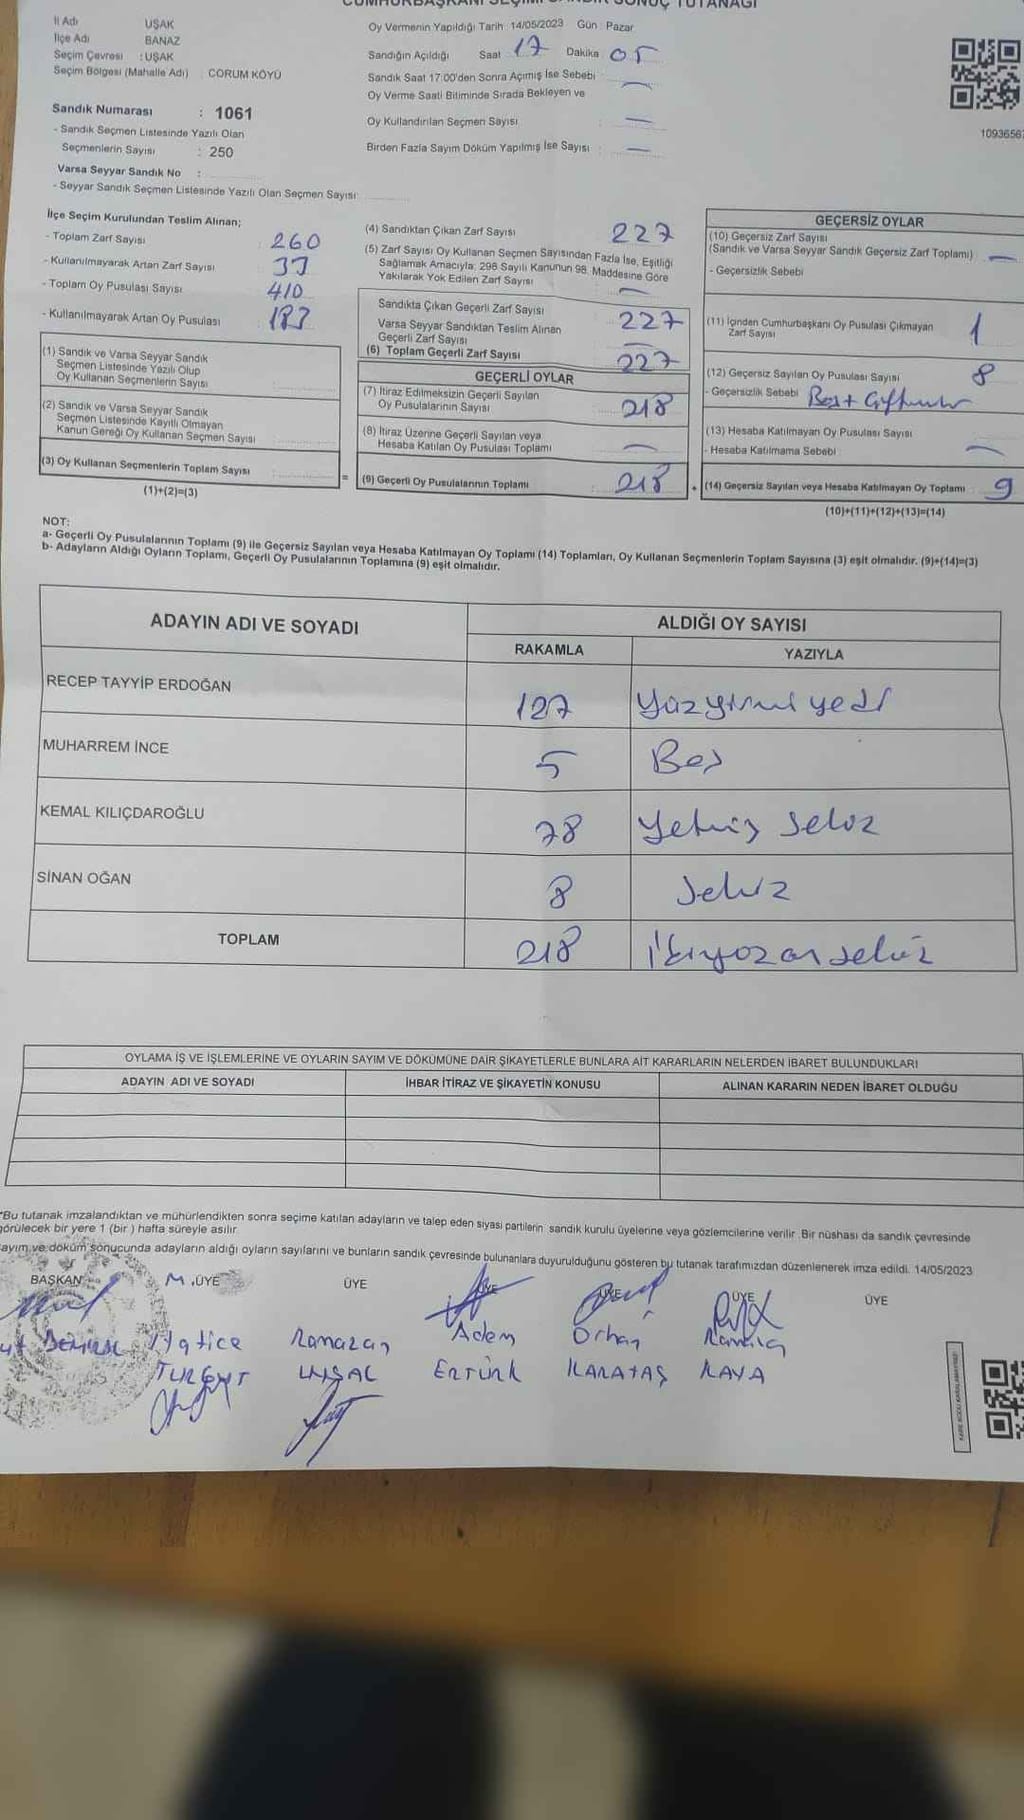 CUMHURBAŞKANI SEÇİMİ SANDIK SONUÇ TUTANAĞI
İl Adı UŞAK
İlçe Adı BANAZ
Seçim Çevresi : UŞAK
Seçim Bölgesi (Mahalle Adı) : CORUM KÖYÜ
Oy Vermenin Yapıldığı Tarih : 14/05/2023 Gün : Pazar
Sandığın Açıldığı Saat 17 Dakika 05
Sandık Saat 17:00'den Sonra Açımış İse Sebebi : —
Oy Verme Saati Bitiminde Sırada Bekleyen ve
Oy Kullandırılan Seçmen Sayısı : —
Birden Fazla Sayım Döküm Yapılmış İse Sayısı : —
1093656
Sandık Numarası : 1061
- Sandık Seçmen Listesinde Yazılı Olan
Seçmenlerin Sayısı : 250
Varsa Seyyar Sandık No :
- Seyyar Sandık Seçmen Listesinde Yazılı Olan Seçmen Sayısı
İlçe Seçim Kurulundan Teslim Alınan;
- Toplam Zarf Sayısı : 260
- Kullanılmayarak Artan Zarf Sayısı : 33
- Toplam Oy Pusulası Sayısı : 410
- Kullanılmayarak Artan Oy Pusulası : 183
(1) Sandık ve Varsa Seyyar Sandık
Seçmen Listesinde Yazılı Olup
Oy Kullanan Seçmenlerin Sayısı
(2) Sandık ve Varsa Seyyar Sandık
Seçmen Listesinde Kayıtlı Olmayan
Kanun Gereği Oy Kullanan Seçmen Sayısı
(3) Oy Kullanan Seçmenlerin Toplam Sayısı =
(1)+(2)=(3)
(4) Sandıktan Çıkan Zarf Sayısı : 227
(5) Zarf Sayısı Oy Kullanan Seçmen Sayısından Fazla İse, Eşitliği
Sağlamak Amacıyla; 298 Sayılı Kanunun 98. Maddesine Göre
Yakılarak Yok Edilen Zarf Sayısı : —
Sandıkta Çıkan Geçerli Zarf Sayısı : 227
Varsa Seyyar Sandıktan Teslim Alınan
Geçerli Zarf Sayısı : —
(6) Toplam Geçerli Zarf Sayısı : 227
GEÇERLİ OYLAR
(7) İtiraz Edilmeksizin Geçerli Sayılan
Oy Pusulalarının Sayısı : 218
(8) İtiraz Üzerine Geçerli Sayılan veya
Hesaba Katılan Oy Pusulası Toplamı : —
(9) Geçerli Oy Pusulalarının Toplamı : 218 +
GEÇERSİZ OYLAR
(10) Geçersiz Zarf Sayısı
(Sandık ve Varsa Seyyar Sandık Geçersiz Zarf Toplamı) : —
- Geçersizlik Sebebi
(11) İçinden Cumhurbaşkanı Oy Pusulası Çıkmayan
Zarf Sayısı 1
(12) Geçersiz Sayılan Oy Pusulası Sayısı 8
- Geçersizlik Sebebi :
(13) Hesaba Katılmayan Oy Pusulası Sayısı —
- Hesaba Katılmama Sebebi :
(14) Geçersiz Sayılan veya Hesaba Katılmayan Oy Toplamı : 9
(10)+(11)+(12)+(13)=(14)
NOT:
a- Geçerli Oy Pusulalarının Toplamı (9) ile Geçersiz Sayılan veya Hesaba Katılmayan Oy Toplamı (14) Toplamları, Oy Kullanan Seçmenlerin Toplam Sayısına (3) eşit olmalıdır. (9)+(14)=(3)
b- Adayların Aldığı Oyların Toplamı, Geçerli Oy Pusulalarının Toplamına (9) eşit olmalıdır.
ADAYIN ADI VE SOYADI ALDIĞI OY SAYISI
RAKAMLA YAZIYLA
RECEP TAYYİP ERDOĞAN 127 Yüzyirmi yedi
MUHARREM İNCE 5 Beş
KEMAL KILIÇDAROĞLU 78 Yetmiş sekiz
SİNAN OĞAN 8 Sekiz
TOPLAM 218 İkiyüz on sekiz
OYLAMA İŞ VE İŞLEMLERİNE VE OYLARIN SAYIM VE DÖKÜMÜNE DAİR ŞİKAYETLERLE BUNLARA AİT KARARLARIN NELERDEN İBARET BULUNDUKLARI
ADAYIN ADI VE SOYADI İHBAR İTİRAZ VE ŞİKAYETİN KONUSU ALINAN KARARIN NEDEN İBARET OLDUĞU
*Bu tutanak imzalandıktan ve mühürlendikten sonra seçime katılan adayların ve talep eden siyasi partilerin sandık kurulu üyelerine veya gözlemcilerine verilir. Bir nüshası da sandık çevresinde
görülecek bir yere 1 (bir ) hafta süreyle asılır.
ayım ve döküm sonucunda adayların aldığı oyların sayılarını ve bunların sandık çevresinde bulunanlara duyurulduğunu gösteren bu tutanak tarafımızdan düzenlenerek imza edildi. 14/05/2023
BAŞKAN M. ÜYE ÜYE ÜYE ÜYE ÜYE ÜYE
Hatice Ramazan Adem Orhan
TURGUT UYSAL ERTÜRK KARATAŞ KAYA